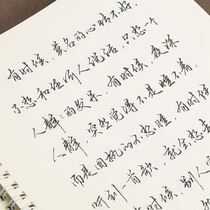 有时候,莫名的心情不好,
不想和任何人说话,只想一个
人静静的发呆。有时候,夜深
人静,突然觉得不是睡不着,
而是固执的不想睡。有时
听到一首歌,就会想
有时候,别人